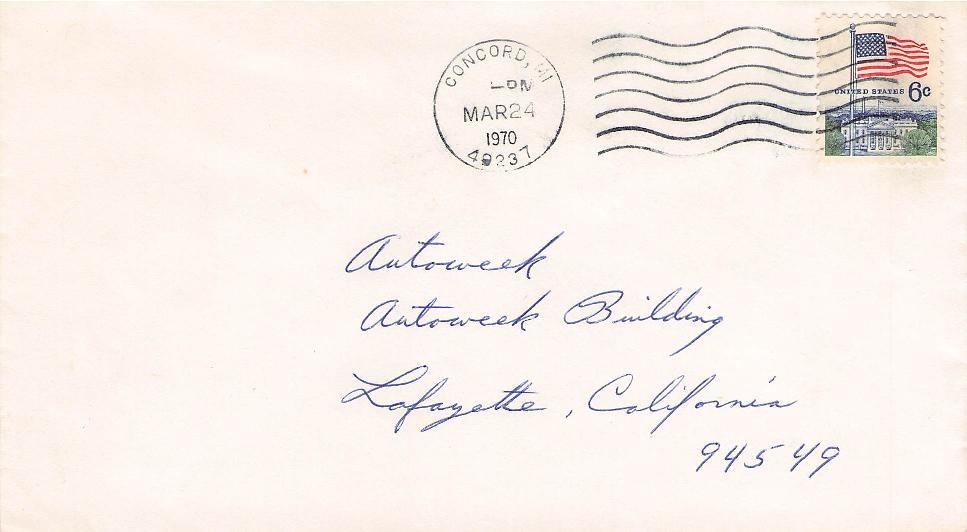 CONCORD, MI
PM
MAR 24
1970
49237
UNITED STATES 6c
Autoweek
Autoweek Building
Lafayette, California
94549